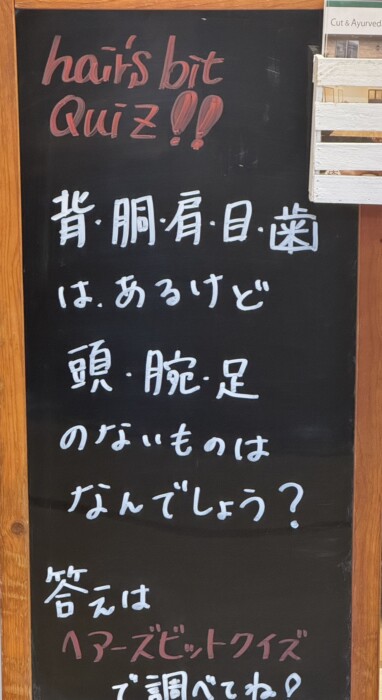 Cut & Ayurveda
hair's bit
Quiz!!
背・胴・肩・目・歯
は、あるけど
頭・腕・足
のないものは
なんでしょう?
答えは
ヘアーズビットクイズ
で調べてね!